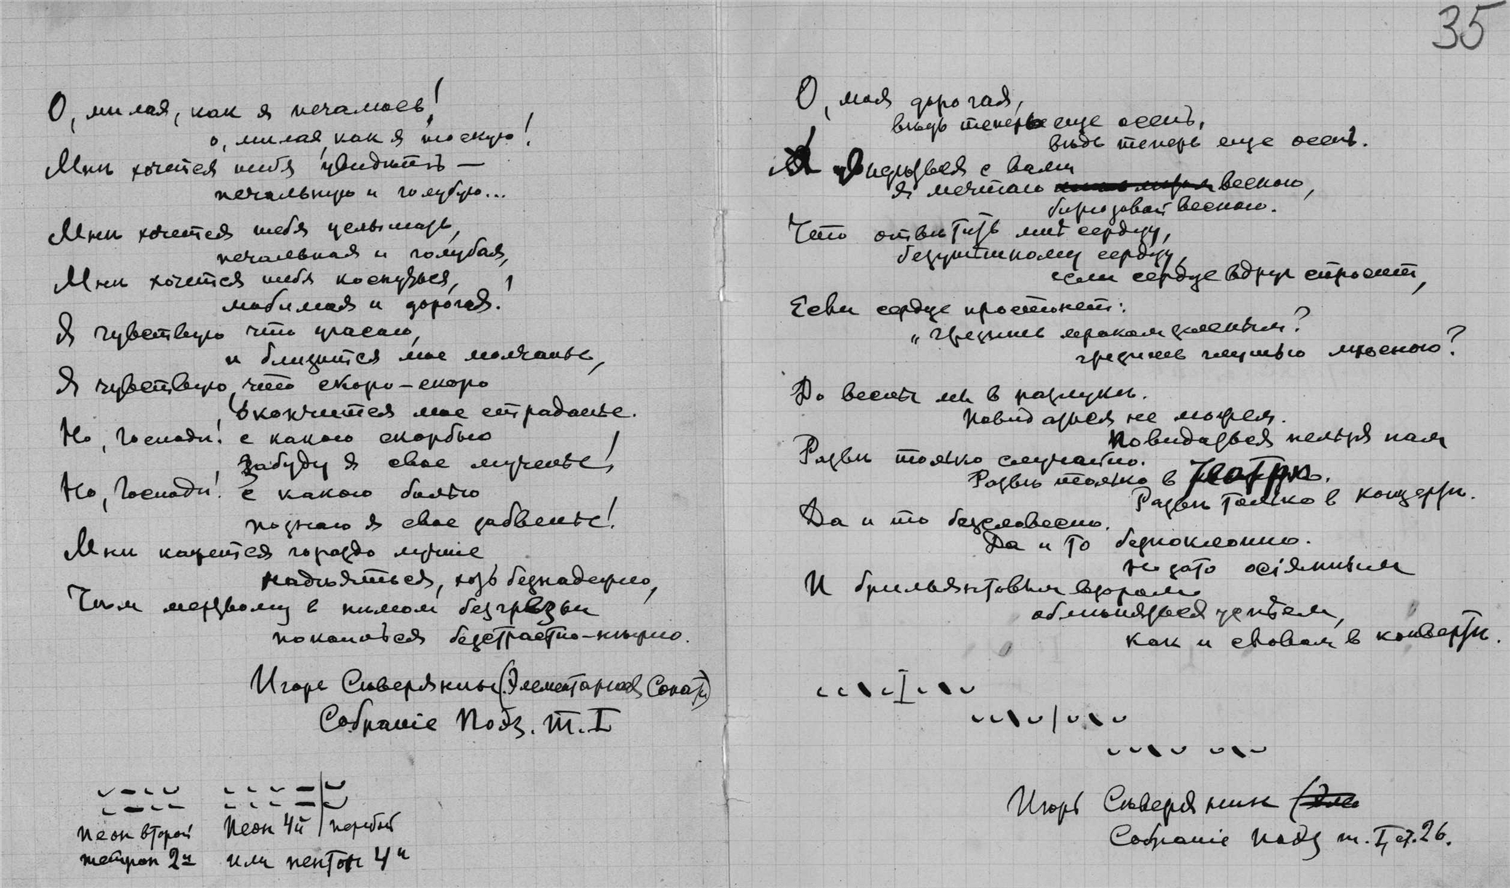 35
О, милая, как я печалюсь!
о, милая, как я тоскую!
Мнѣ хочется тебя увидѣть —
печальную и голубую...
Мнѣ хочется тебя услышать,
печальная и голубая,
Мнѣ хочется тебя коснуться,
любимая и дорогая!
Я чувствую что угасаю,
и близится мое молчанье,
Я чувствую, что скоро-скоро
окончится мое страданье.
Но, Господи! с какою скорбью
забуду я свое мученье!
Но, Господи! с какою болью
познаю я свое забвенье!
Мнѣ кажется гораздо лучше
надѣяться, хоть безнадежно,
Чѣм мертвому в нѣмом безгрезьи
покоиться безстрастно-нѣжно.
Игорь Сѣверянинъ (Элементарная Соната)
Собраніе Поэз. т. I
пеон второй пеон 4й первый
тетрон 2й или пентон 4й
О, моя дорогая,
вѣдь теперь еще осень,
вѣдь теперь еще осень.
А увидѣться с вами
я мечтаю весною,
бирюзовой весною.
Что отвѣтить мнѣ сердцу,
безутѣшному сердцу,
если сердце вдруг спросит,
Если сердце простонет:
„Грезишь мраком зеленым?
грезишь глушью лѣсною?
До весны мы в разлукѣ.
Повидаться не можем.
Повидаться нельзя нам
Развѣ только случайно.
Развѣ только в театрѣ.
Развѣ только в концертѣ.
Да и то безсловесно.
Да и то безпоклонно.
Но зато осіянным
И брильянтовым взором
обмѣняться успѣем,
как и словом в конвертѣ.
Игорь Сѣверянин
Собраніе поэз т. I, ст. 26.